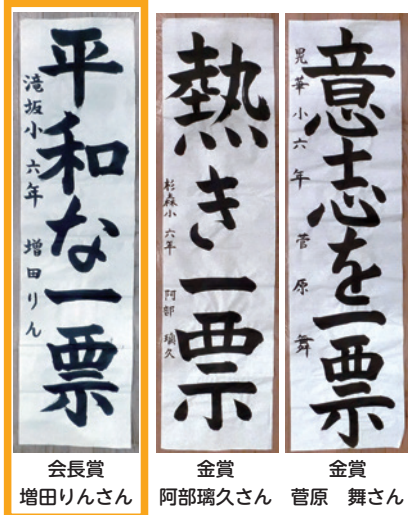 平和な一票
滝坂小 六年 増田りん
会長賞
増田りんさん
熱き一票
杉森小 六年 阿部 璃久
金賞
阿部璃久さん
意志を一票
晃華小 六年 菅原 舞
金賞
菅原 舞さん